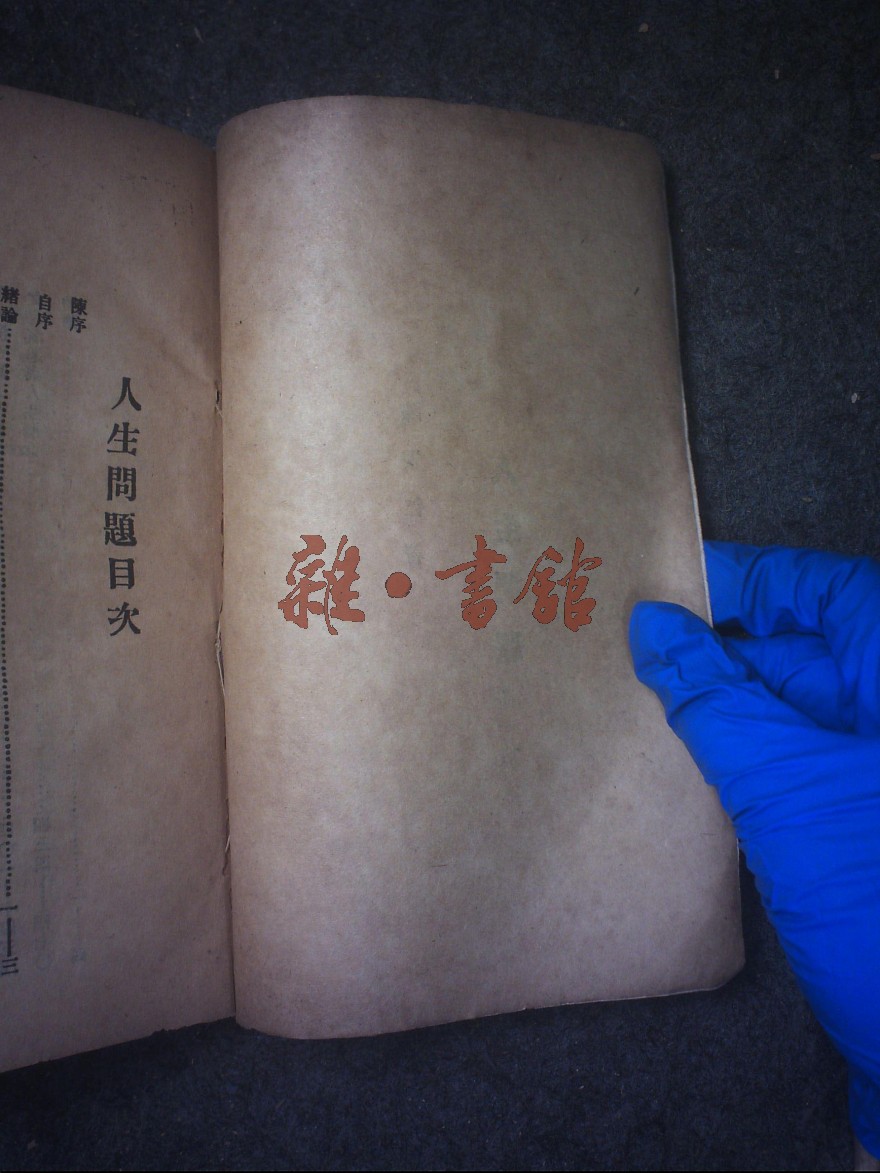 人生問題目次
陳序
自序
緒論……………一——三
雜·書館